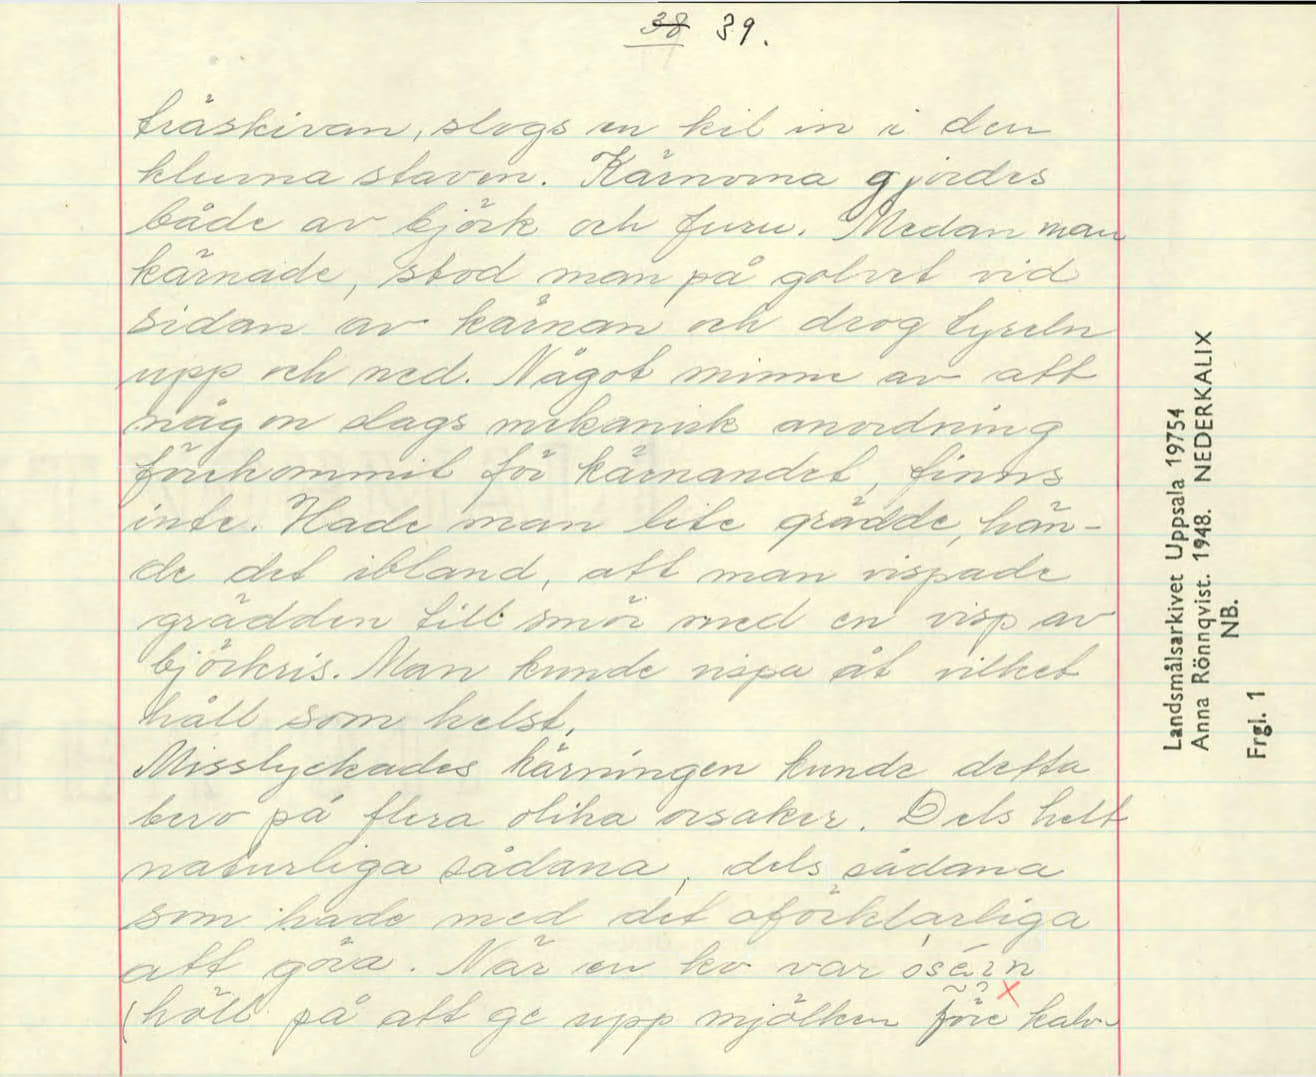 38 39.
träskivan, slogs en kil in i den
kluvna staven. Kärnorna gjordes
både av björk och furu. Medan man
kärnade, stod man på golvet vid
sidan av kärnan och drog tyreln
upp och ned. Något minne av att
någon slags mekanisk anordning
förekommit för kärnandet, finns
inte. Hade man lite grädde, hän-
de det ibland, att man vispade
grädden till smör med en visp av
björkris. Man kunde vispa åt vilket
håll som helst.
Misslyckades kärningen kunde detta
bero på flera olika orsaker. Dels helt
naturliga sådana, dels sådana
som hade med det oförklarliga
att göra. När en ko var
(höll på att ge upp mjölken före kalv-
Landsmålsarkivet Uppsala 19754
Anna Rönnqvist. 1948. NEDERKALIX
NB.
Frgl. 1